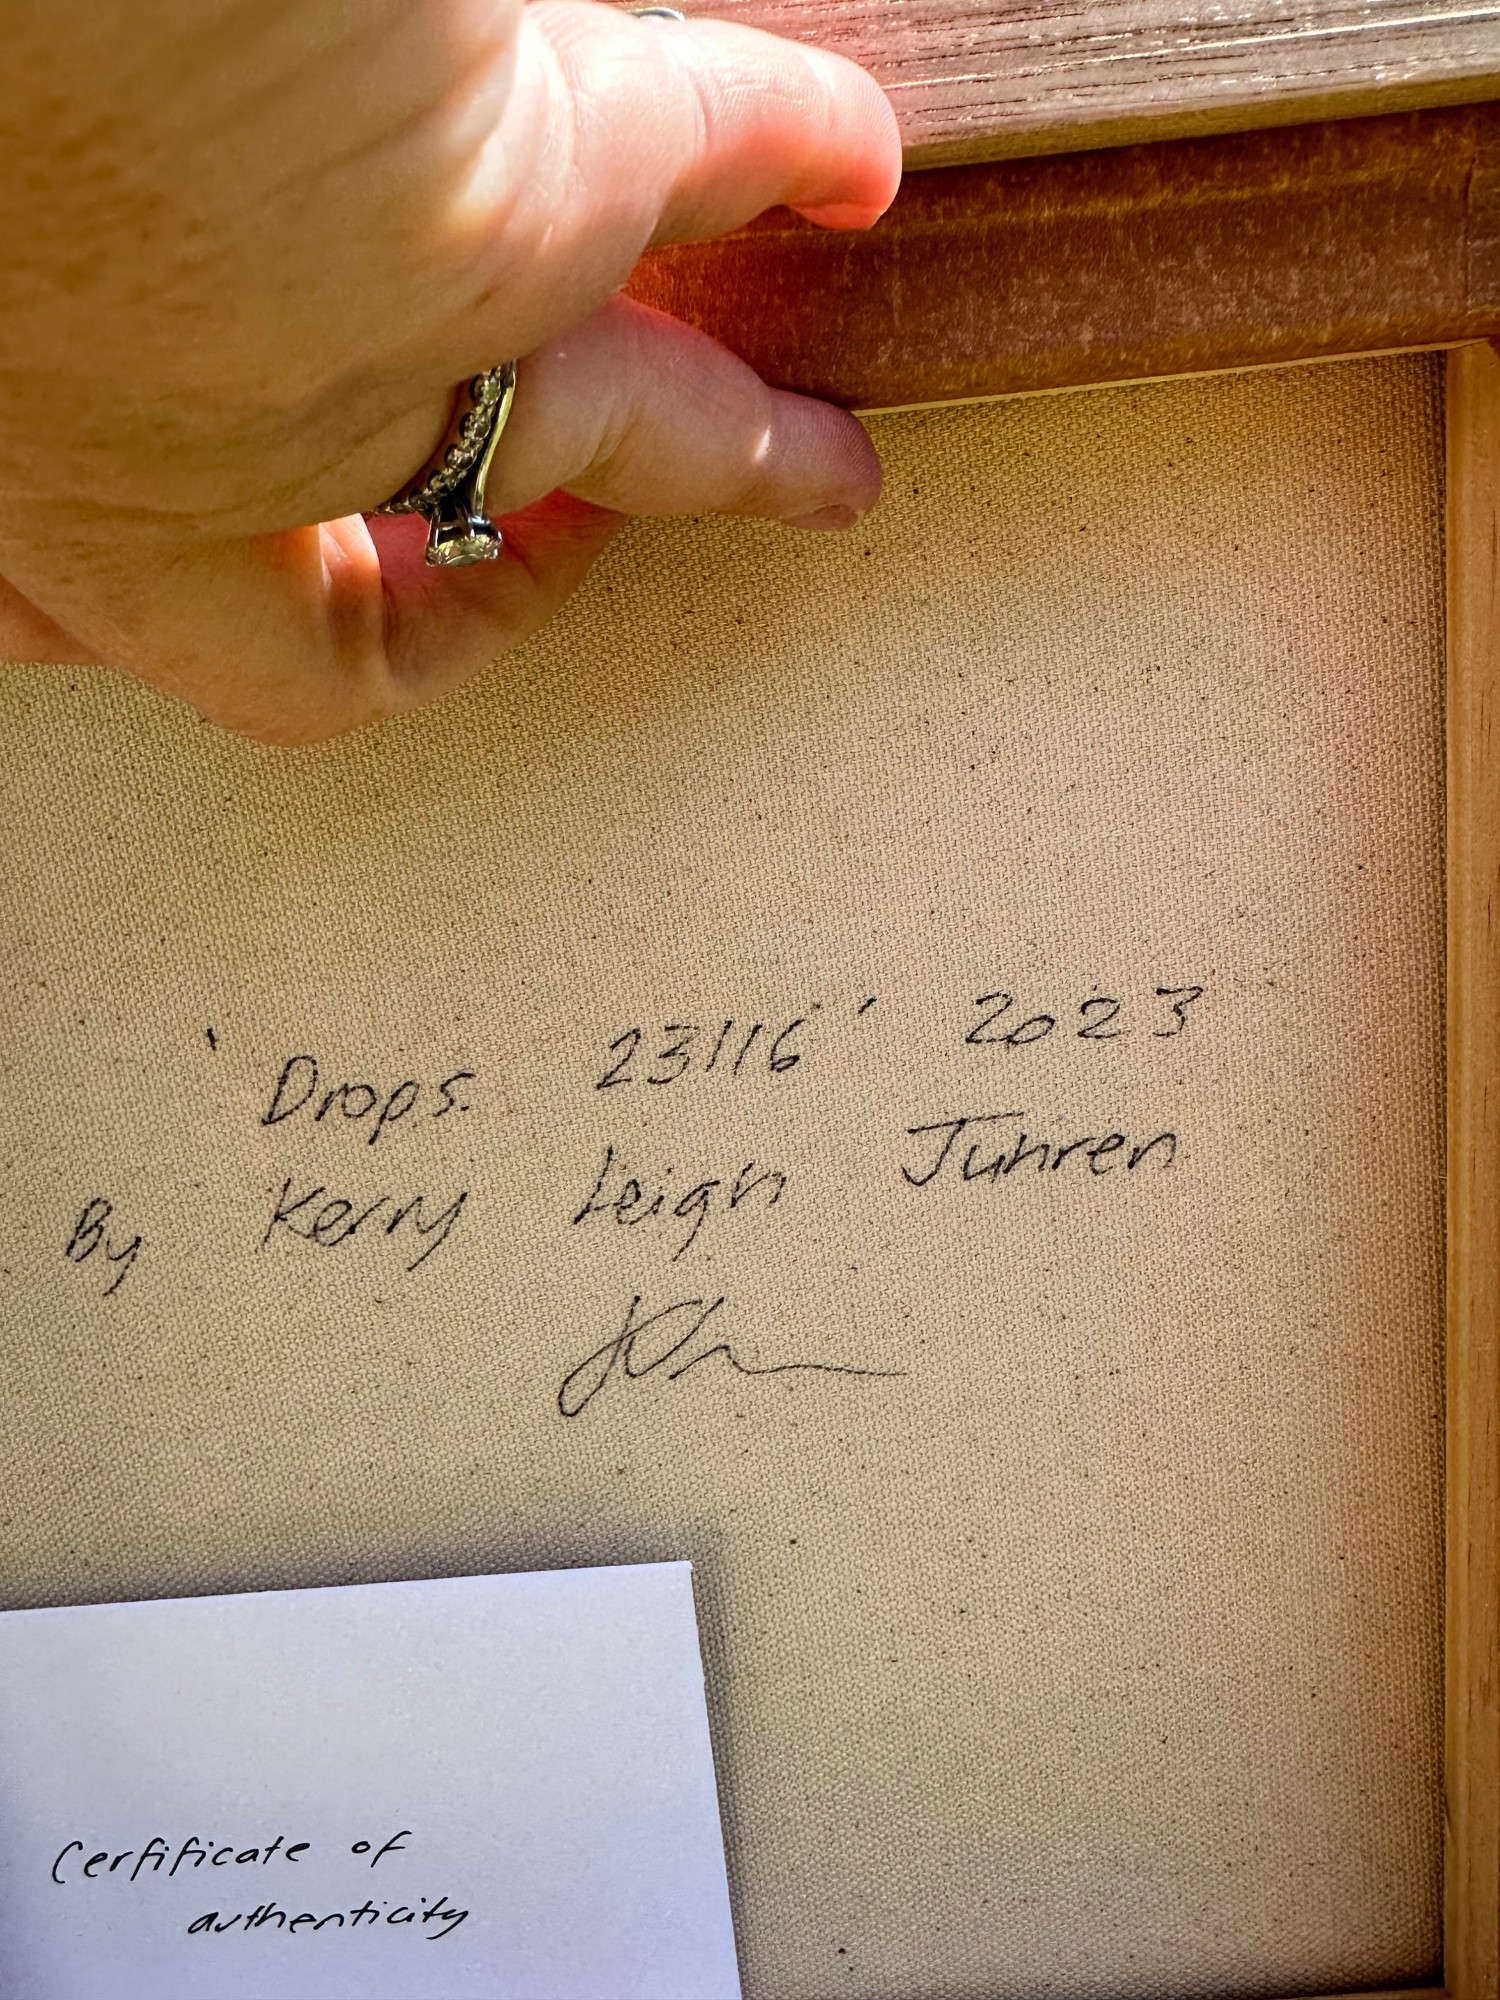 'Drops. 23116' 2023
By Kerry Leigh Juhren
Certificate of
authenticity